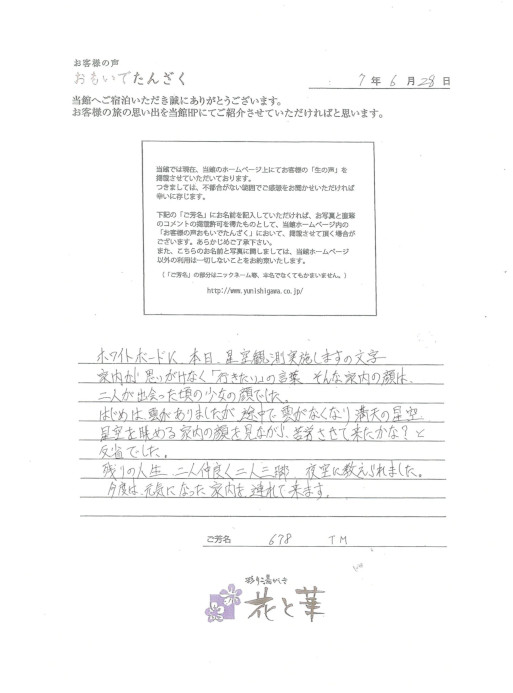 お客様の声
おもいでたんざく
7 年 6 月 28 日
当館へご宿泊いただき誠にありがとうございます。
お客様の旅の思い出を当館HPにてご紹介させていただければと思います。
当館では現在、当館のホームページ上にてお客様の「生の声」を
掲載させていただいております。
つきましては、不都合がない範囲でご感想をお聞かせいただければ
幸いに存じます。
下記の「ご芳名」にお名前を記入していただければ、お写真と直筆
のコメントの掲載許可を得たものとして、当館ホームページ内の
「お客様の声おもいでたんざく」において、掲載させて頂く場合が
ございます。あらかじめご了承下さい。
また、こちらのお名前と写真に関しましては、当館ホームページ
以外の利用は一切しないことをお約束いたします。
（「ご芳名」の部分はニックネーム等、本名でなくてもかまいません。）
http://www.yunishigawa.co.jp/
ホワイトボードに、本日、星空観測実施しますの文字
家内が思いがけなく「行きたい」の言葉 そんな家内の顔は、
二人が出会った頃の少女の顔でした。
はじめは、雲がありましたが 途中で雲がなくなり 満天の星空
星空を眺める家内の顔を見ながら、苦労させて来たかな？と
反省でした。
残りの人生 二人仲良く二人三脚 夜空に教えられました。
今度は、元気になった家内を、連れて来ます。
ご芳名 678 TM
彩り湯かしき
花と華